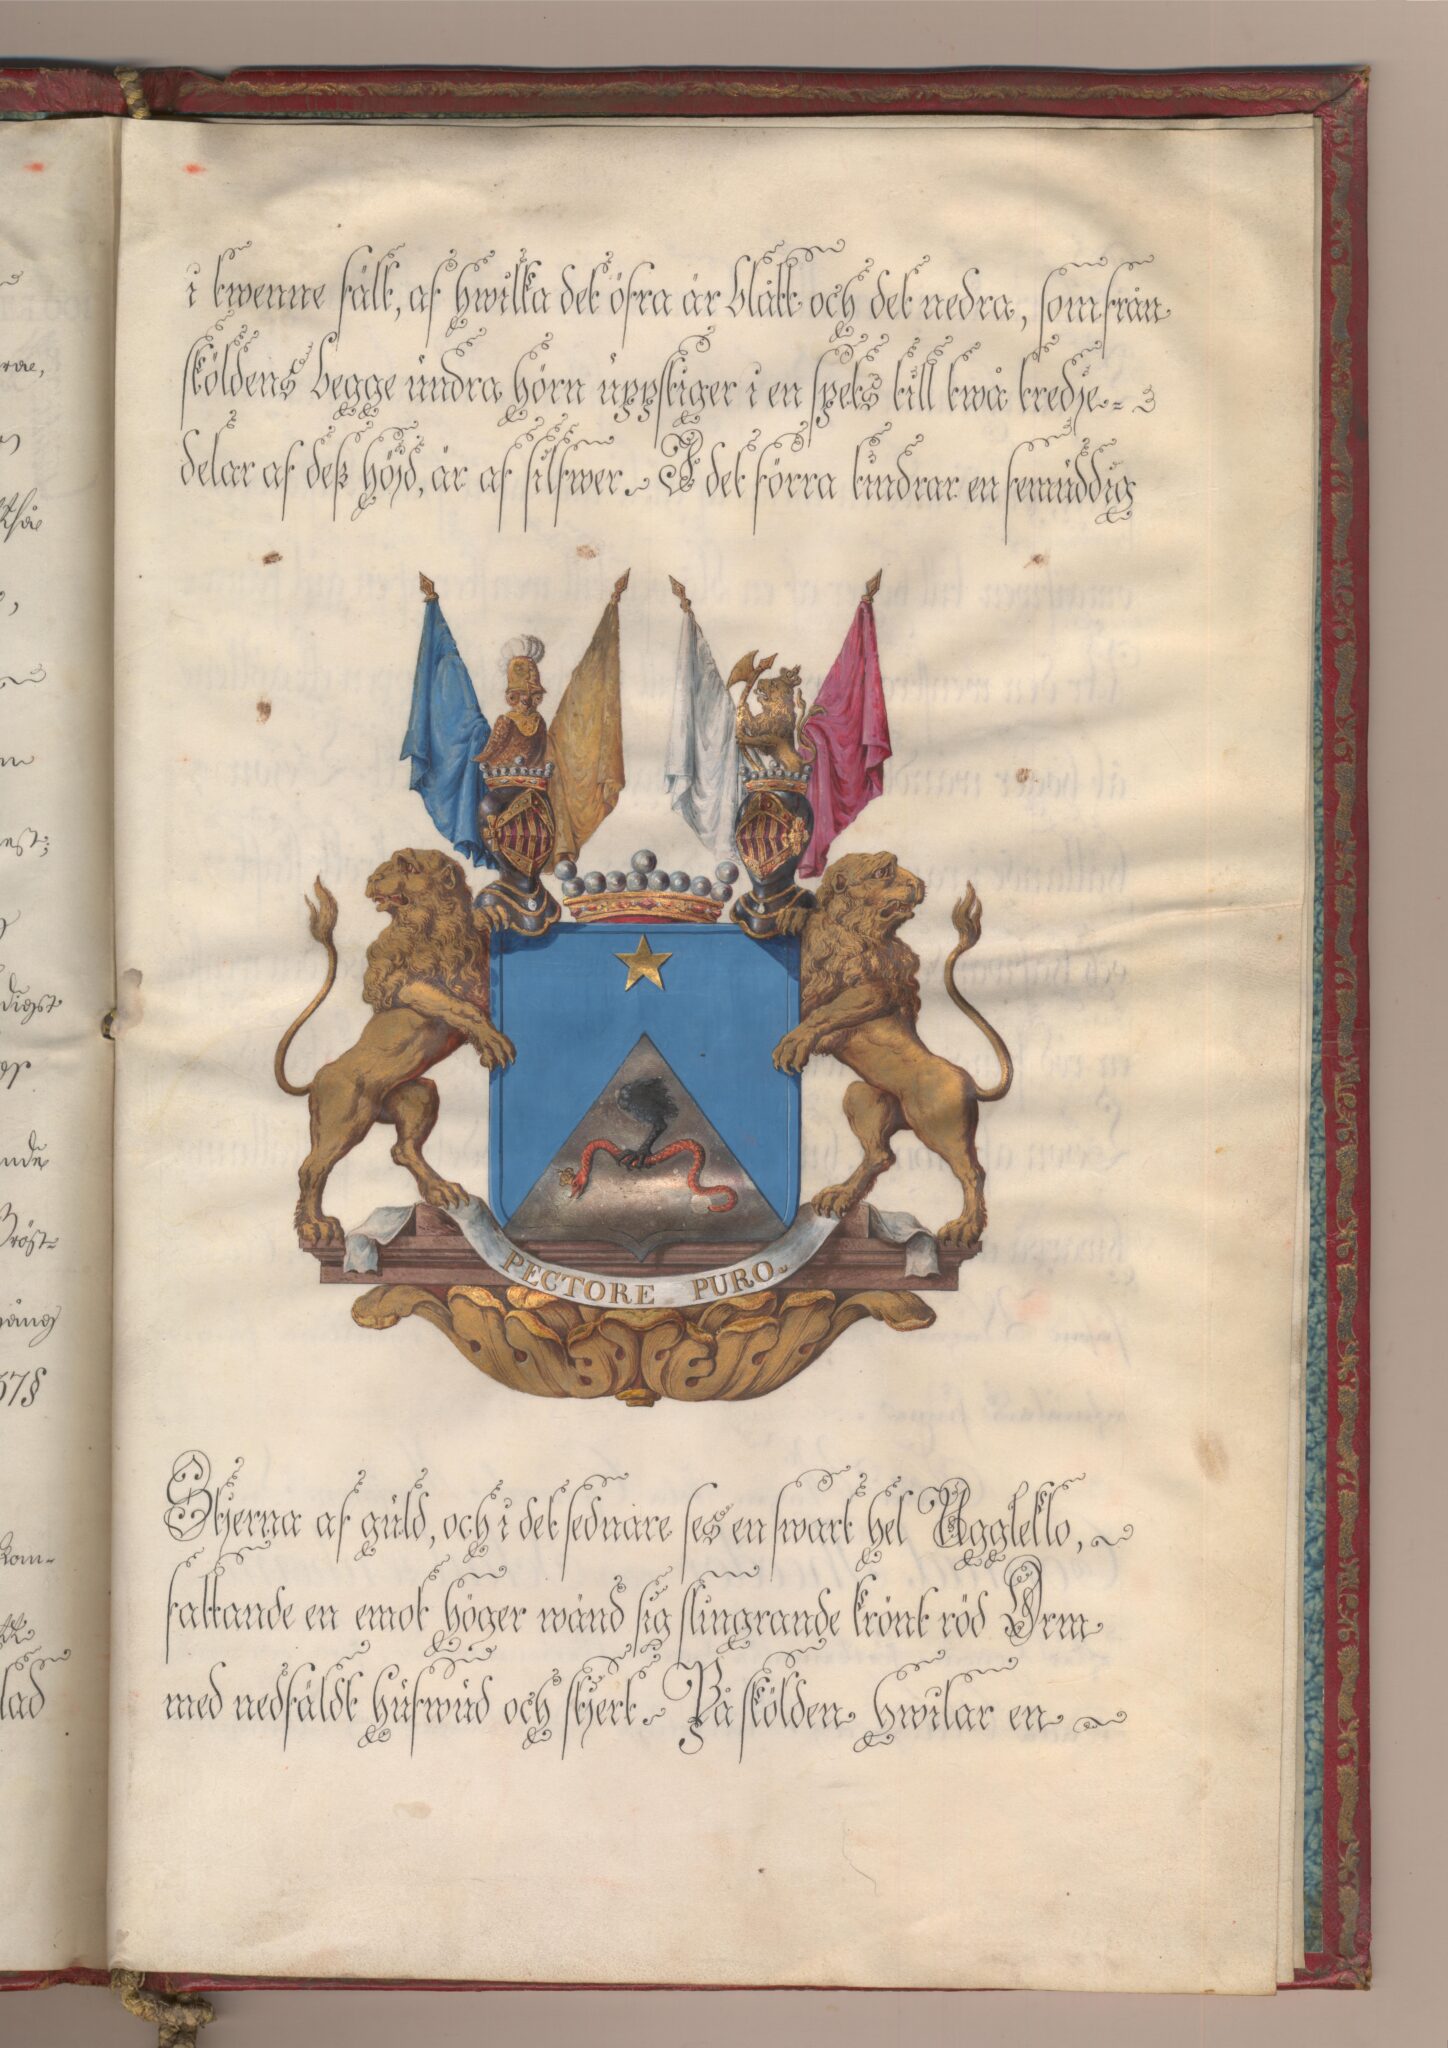 i twenne fält, af hwilka det öfra är blått och det nedra, som från
sköldens begge undra hörn uppstiger i en spets till twå tredje-
delar af deß höjd, är af silfwer. I det förra tindrar en femuddig
PECTORE PURO.
Stjerna af guld, och i det sednare ses en swart hel Uggleklo,
fattande en emot höger wänd sig slingrande krönt röd Orm
med nedfäldt hufwud och stjert. På skölden hwilar en
57§